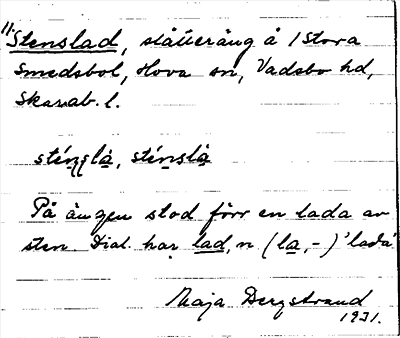 11. Stenslad, slåtteräng å 1 Stora
Smedsbol, Hova sn, Vadsbo hd,
Skarab. l.
sténs̨la̱, sténsla̱
På ängen stod förr en lada av
sten. Dial. har lad, n (la̱, -) 'lada'.
Maja Bergstrand
1931.